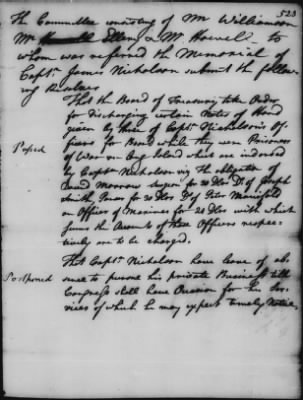 523
The Committee consisting of Mr Williamson
Mr Ellery & Mr Howell to
whom was referred the Memorial of
Capt. James Nicholson submit the follow
ing Resolves
That the Board of Treasury take Order
for discharging certain Notes of Hand
given by three of Capt. Nicholson's Of
Passed
ficers for Board while they were Prisoners
of War on Long Island which are indorsed
by Capt. Nicholson viz The obligation of
David Morrow Surgeon for 30 Dlrs Do of Joseph
Smith for 30 Dlrs Do of Peter
an Officer of Marines for 20 Dlrs with which
Sums the Accounts of these Officers respec
tively are to be charged.
That Capt. Nicholson have leave of ab
Postponed
sence to pursue his private Business till
Congress shall have Occasion for his Ser
vices of which he may expect timely Notice.